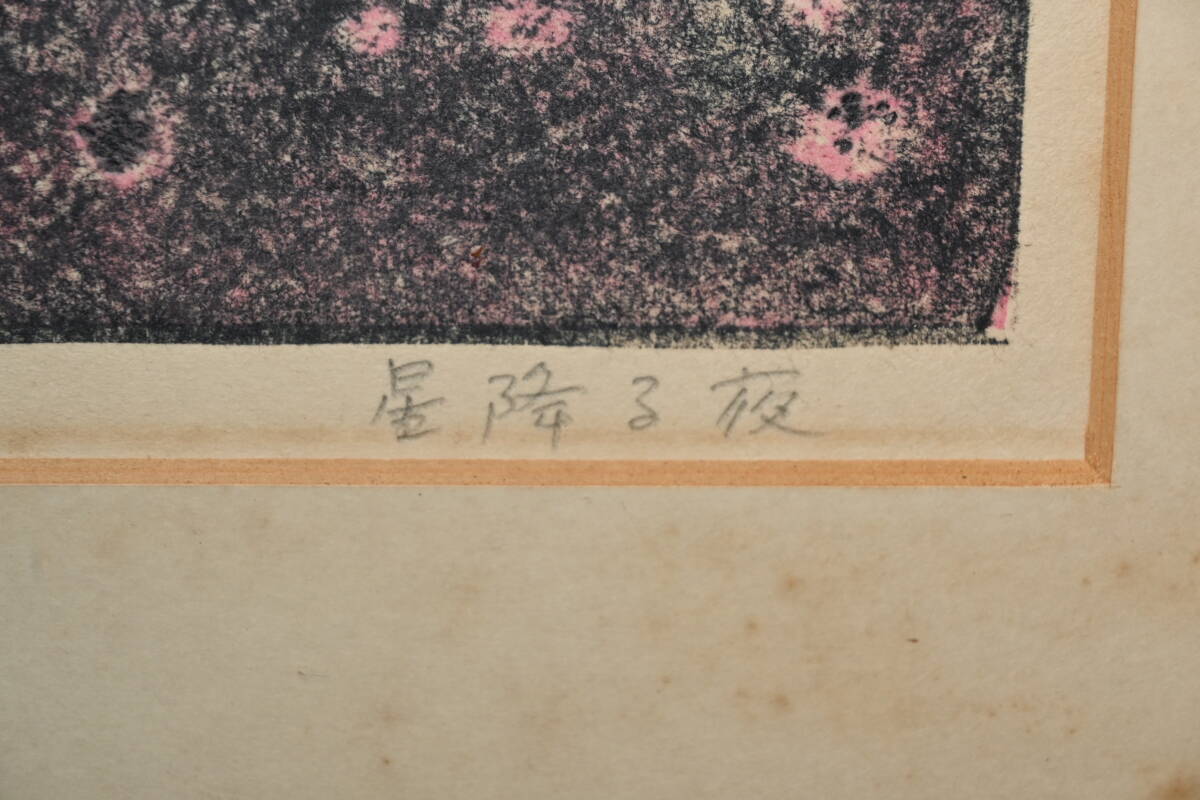 星降る夜